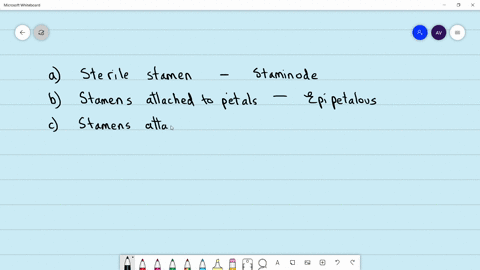 Microsoft Whiteboard
AV
a) Sterile stamen - Staminode
b) Stamens attached to petals - Epipetalous
c) Stamens atta